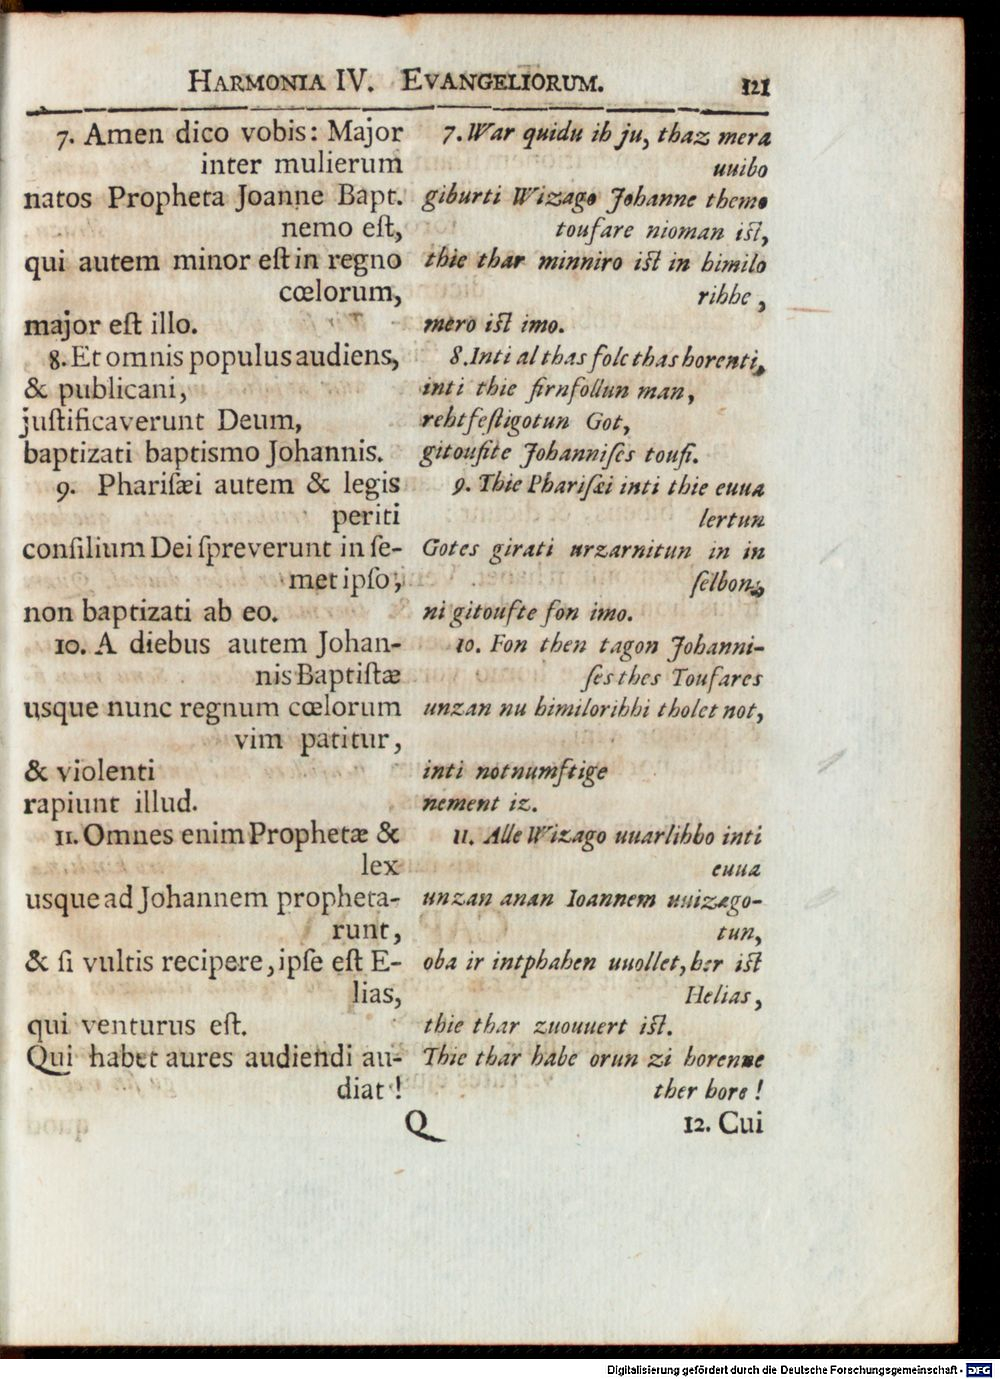 HARMONIA IV. EVANGELIORUM. 121
7. Amen dico vobis: Major
inter mulierum
natos Propheta Joanne Bapt.
nemo eſt,
qui autem minor eſt in regno
cœlorum,
major eſt illo.
8. Et omnis populus audiens,
& publicani,
juſtificaverunt Deum,
baptizati baptismo Johannis.
9. Phariſæi autem & legis
periti
conſilium Dei ſpreverunt in ſe-
met ipſo,
non baptizati ab eo.
10. A diebus autem Johan-
nis Baptiſtæ
usque nunc regnum cœlorum
vim patitur,
& violenti
rapiunt illud.
11. Omnes enim Prophetæ &
lex
usque ad Johannem propheta-
runt,
& ſi vultis recipere, ipſe eſt E-
lias,
qui venturus eſt.
Qui habet aures audiendi au-
diat!
7. War quidu ih ju, thaz mera
uuibo
giburti Wizago Johanne themo
toufare nioman iſt,
thie thar minniro iſt in himilo
rihhe,
mero iſt imo.
8. Inti al thas folc thas horenti,
inti thie firnfollun man,
rehtfeſtigotun Got,
gitoufite Johanniſes toufi.
9. Thie Phariſæi inti thie euua
lertun
Gotes girati urzarnitun in in
ſelbon,
ni gitoufte fon imo.
10. Fon then tagon Johanni-
ſes thes Toufares
unzan nu himilorihhi tholet not,
inti notnumftige
nement iz.
11. Alle Wizago uuarlihbo inti
euua
unzan anan Ioannem uuizago-
tun,
oba ir intphahen uuollet, her iſt
Helias,
thie thar zuouuert iſt.
Thie thar habe orun zi horenne
ther hore!
Q 12. Cui
Digitalisierung gefördert durch die Deutsche Forschungsgemeinschaft - DFG